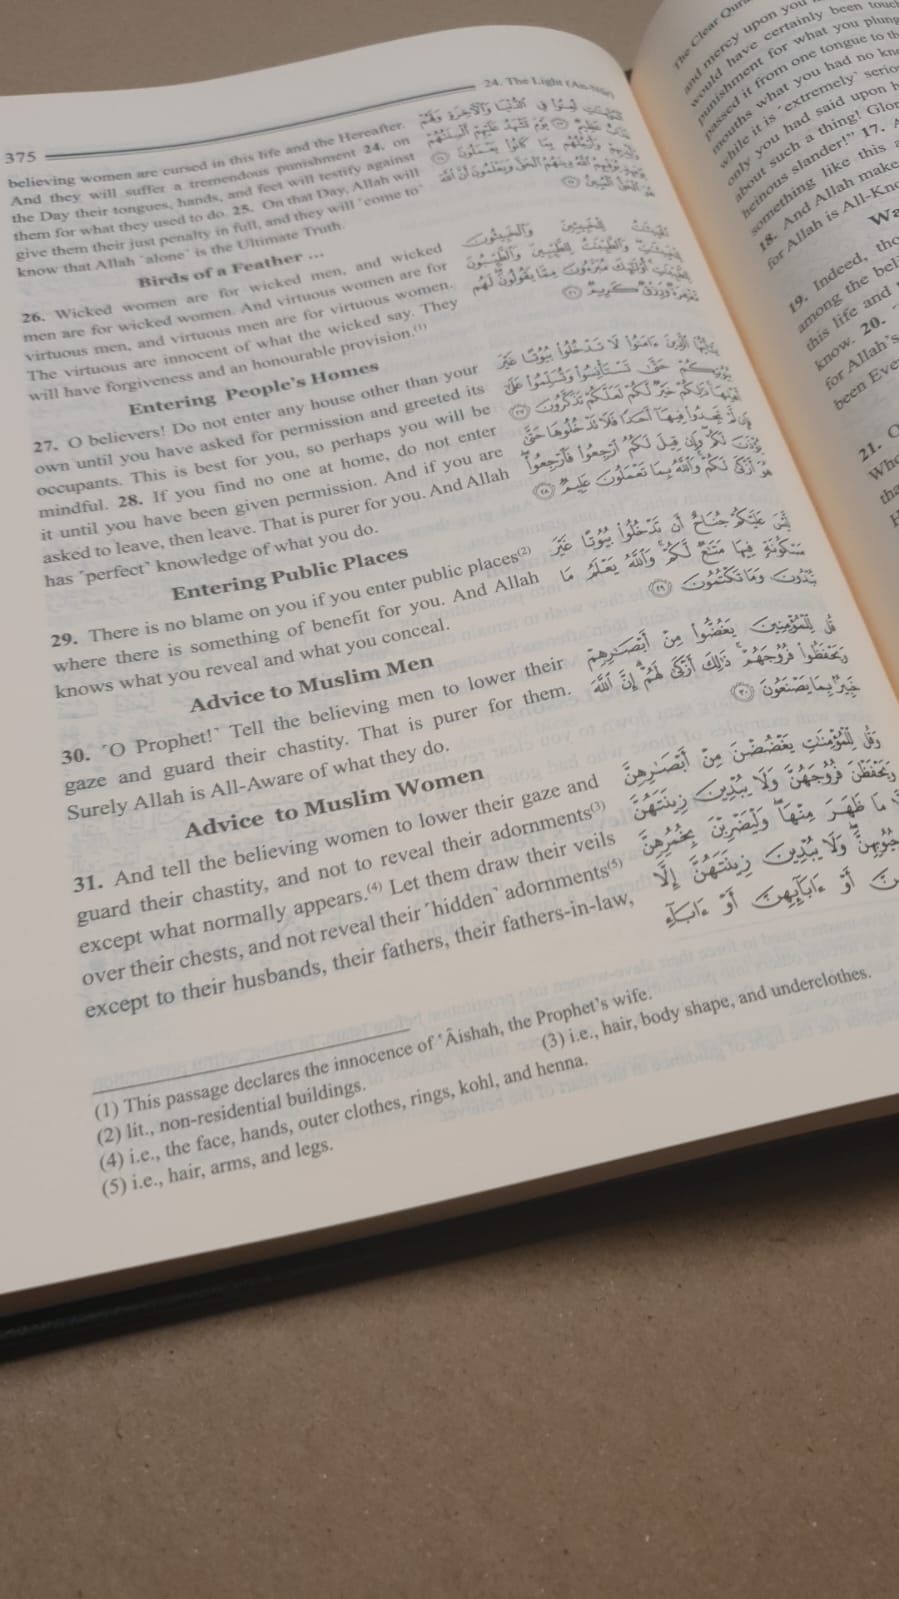 375
24. The Light (An-Nûr)
believing women are cursed in this life and the Hereafter.
And they will suffer a tremendous punishment 24. on
the Day their tongues, hands, and feet will testify against
them for what they used to do. 25. On that Day, Allah will
give them their just penalty in full, and they will ˹come to˺
know that Allah ˹alone˺ is the Ultimate Truth.
Birds of a Feather ...
26. Wicked women are for wicked men, and wicked
men are for wicked women. And virtuous women are for
virtuous men, and virtuous men are for virtuous women.
The virtuous are innocent of what the wicked say. They
will have forgiveness and an honourable provision.(1)
Entering People's Homes
27. O believers! Do not enter any house other than your
own until you have asked for permission and greeted its
occupants. This is best for you, so perhaps you will be
mindful. 28. If you find no one at home, do not enter
it until you have been given permission. And if you are
asked to leave, then leave. That is purer for you. And Allah
has ˹perfect˺ knowledge of what you do.
Entering Public Places
29. There is no blame on you if you enter public places(2)
where there is something of benefit for you. And Allah
knows what you reveal and what you conceal.
Advice to Muslim Men
30. ˹O Prophet!˺ Tell the believing men to lower their
gaze and guard their chastity. That is purer for them.
Surely Allah is All-Aware of what they do.
Advice to Muslim Women
31. And tell the believing women to lower their gaze and
guard their chastity, and not to reveal their adornments(3)
except what normally appears.(4) Let them draw their veils
over their chests, and not reveal their ˹hidden˺ adornments(5)
except to their husbands, their fathers, their fathers-in-law,
يَٰٓأَيُّهَا ٱلَّذِينَ ءَامَنُوا۟ لَا تَدْخُلُوا۟ بُيُوتًا غَيْرَ
بُيُوتِكُمْ حَتَّىٰ تَسْتَأْنِسُوا۟ وَتُسَلِّمُوا۟ عَلَىٰٓ
أَهْلِهَا ۚ ذَٰلِكُمْ خَيْرٌ لَّكُمْ لَعَلَّكُمْ تَذَكَّرُونَ ٢٧
فَإِن لَّمْ تَجِدُوا۟ فِيهَآ أَحَدًا فَلَا تَدْخُلُوهَا حَتَّىٰ
يُؤْذَنَ لَكُمْ ۖ وَإِن قِيلَ لَكُمُ ٱرْجِعُوا۟ فَٱرْجِعُوا۟ ۖ
هُوَ أَزْكَىٰ لَكُمْ ۚ وَٱللَّهُ بِمَا تَعْمَلُونَ عَلِيمٌ ٢٨
لَّيْسَ عَلَيْكُمْ جُنَاحٌ أَن تَدْخُلُوا۟ بُيُوتًا غَيْرَ
مَسْكُونَةٍ فِيهَا مَتَٰعٌ لَّكُمْ ۚ وَٱللَّهُ يَعْلَمُ مَا
تُبْدُونَ وَمَا تَكْتُمُونَ ٢٩
قُل لِّلْمُؤْمِنِينَ يَغُضُّوا۟ مِنْ أَبْصَٰرِهِمْ
وَيَحْفَظُوا۟ فُرُوجَهُمْ ۚ ذَٰلِكَ أَزْكَىٰ لَهُمْ ۗ إِنَّ ٱللَّهَ
خَبِيرٌۢ بِمَا يَصْنَعُونَ ٣٠
وَقُل لِّلْمُؤْمِنَٰتِ يَغْضُضْنَ مِنْ أَبْصَٰرِهِنَّ
وَيَحْفَظْنَ فُرُوجَهُنَّ وَلَا يُبْدِينَ زِينَتَهُنَّ
إِلَّا مَا ظَهَرَ مِنْهَا ۖ وَلْيَضْرِبْنَ بِخُمُرِهِنَّ
جُيُوبِهِنَّ ۖ وَلَا يُبْدِينَ زِينَتَهُنَّ إِلَّا
أَوْ ءَابَآئِهِنَّ أَوْ ءَابَآءِ
(1) This passage declares the innocence of 'Âishah, the Prophet's wife.
(2) lit., non-residential buildings.
(3) i.e., hair, body shape, and underclothes.
(4) i.e., the face, hands, outer clothes, rings, kohl, and henna.
(5) i.e., hair, arms, and legs.
The Clear Qur
and mercy upon you
would have certainly been touc
punishment for what you plung
passed it from one tongue to th
mouths what you had no kno
while it is ˹extremely˺ serio
only you had said upon h
about such a thing! Glor
heinous slander!" 17. A
something like this a
18. And Allah make
for Allah is All-Kno
Wa
19. Indeed, tho
among the beli
this life and
know. 20.
for Allah's
been Ever
21. O
Who
tha